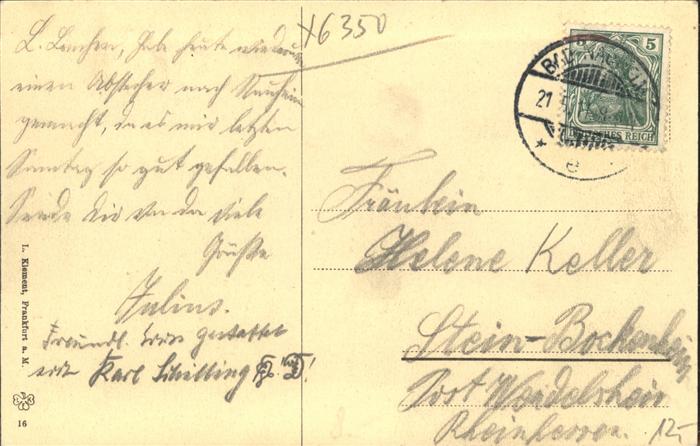 X6350
L. Lenchen, Habe heute wiederum
einen Abstecher nach Nauheim
gemacht, da es mir letzten
Sonntag so gut gefallen.
Sende dir von da viele
Grüße
Julius.
Freundl. Gruß gestattet
sich Karl Schilling
L. Klement, Frankfurt a. M.
16
5
BAD-NAU
21
DEUTSCHES REICH
* e
Fräulein
Helene Keller
Stein-Bockenheim
Post Wendelsheim
Rheinhessen.
12.-